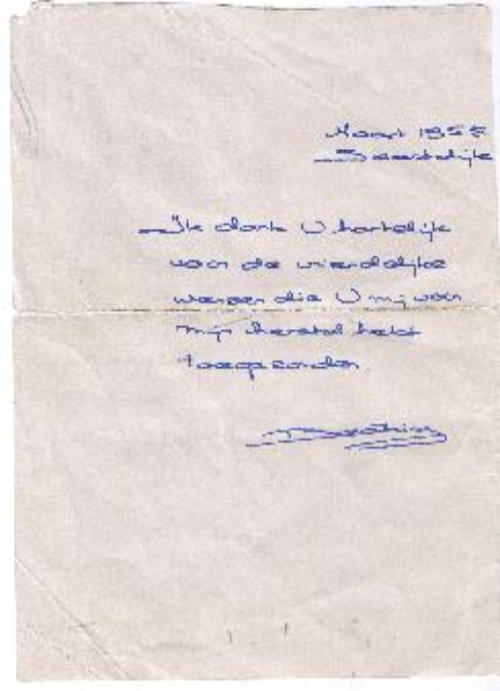 Maart 195
Soestdijk
Ik dank U hartelijk
voor de vriendelijke
wensen die U mij voor
mijn herstel hebt
toegezonden.
Beatrix